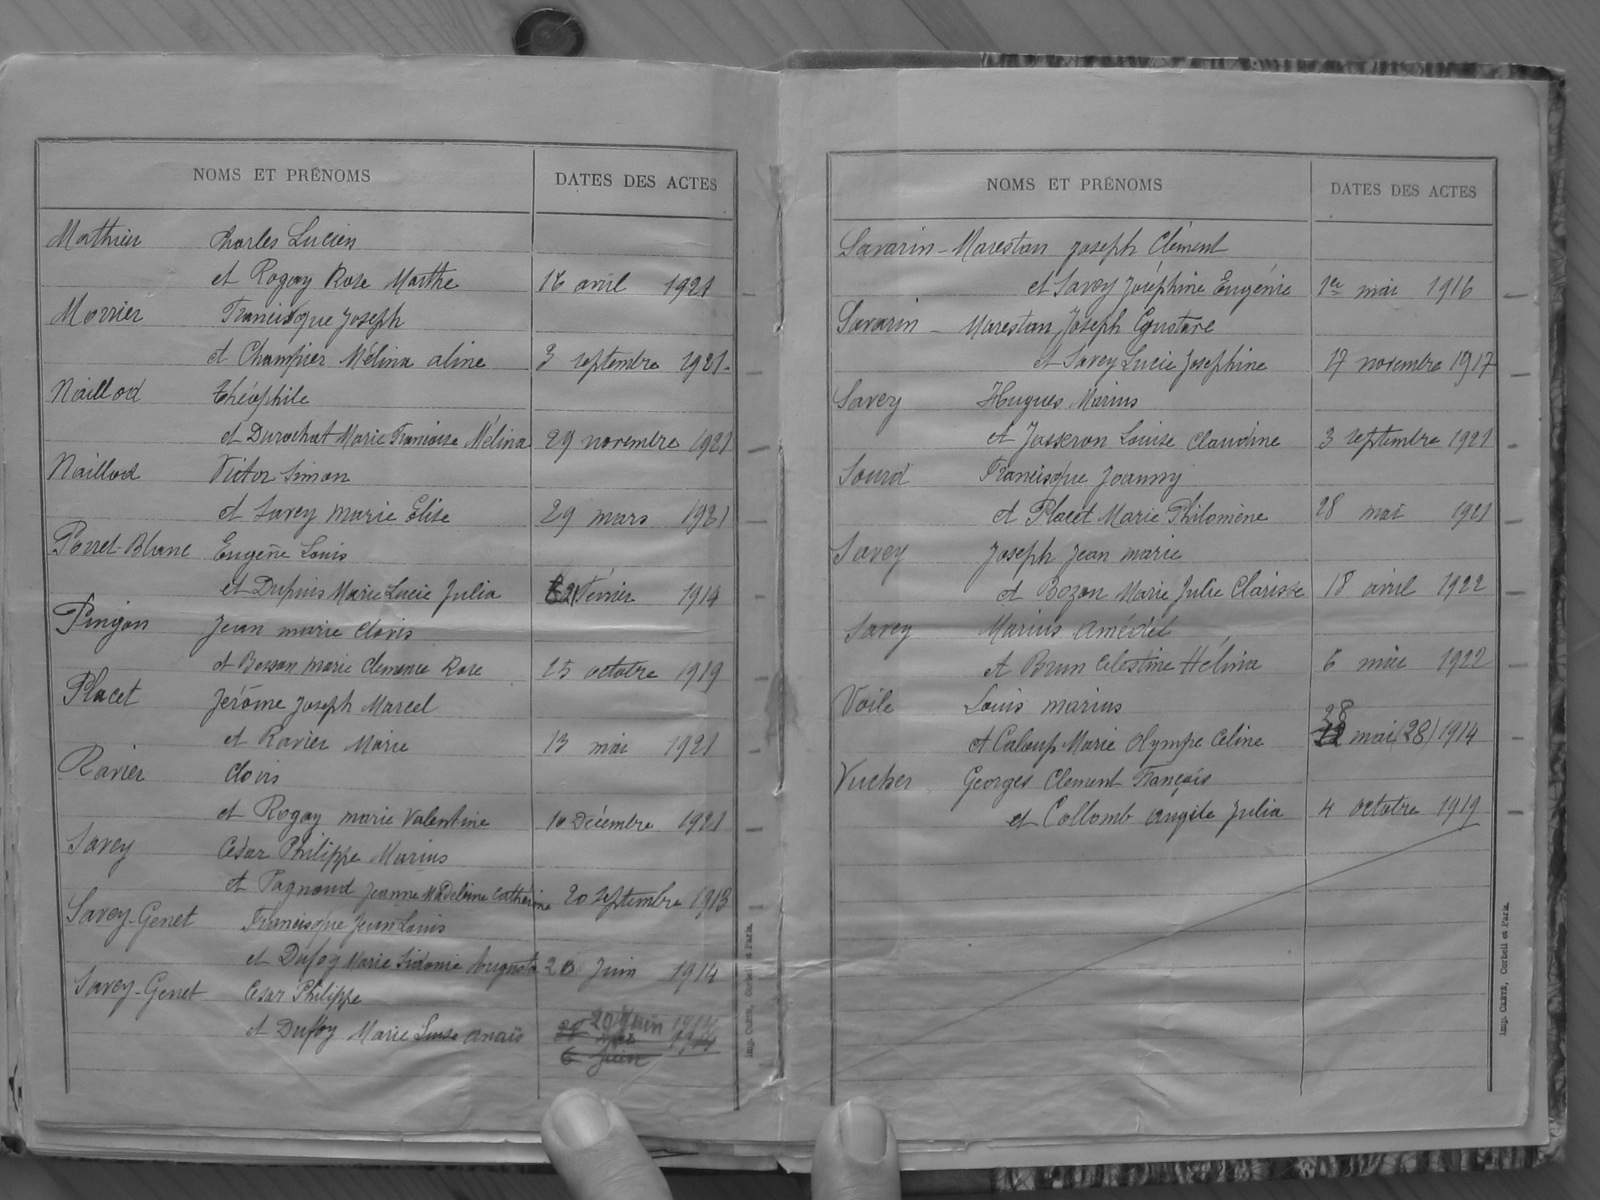 NOMS ET PRÉNOMS DATES DES ACTES
Mathieu Charles Lucien
et Rogay Rose Marthe 16 avril 1921
Morrier Francisque Joseph
et Champier Mélina aline 3 septembre 1921
Naillod théophile
et Durochat Marie Françoise Mélina 29 novembre 1921
Naillod Victor Simon
et Savey Marie Elise 29 mars 1921
Perret-Blanc Eugène Louis
et Dupuis Marie Lucie Julia 21 Février 1914
Pingon Jean marie clovis
et Bosson marie clemence Rose 25 octobre 1919
Placet Jérôme Joseph Marcel
et Ravier Marie 13 mai 1921
Ravier clovis
et Rogay marie Valentine 10 Décembre 1921
Savey César Philippe Marius
et Pagnoud Jeanne Madeleine Cathérine 20 septembre 1913
Savey-Genet Francisque Jean Louis
et Dufoy Marie Sidonie Augusta 20 Juin 1914
Savey-Genet César Philippe
et Duffoy Marie Louise anaïs 20 Juin 1914
6 Juin
Imp. CRÉTÉ, Corbeil et Paris.
NOMS ET PRÉNOMS DATES DES ACTES
Savarin-Marestan Joseph Clément
et Savey Joséphine Eugénie 1er mai 1916
Savarin-Marestan Joseph Gustave
et Savey Lucie Josephine 17 novembre 1917
Savey Hugues Marius
et Josseron Louise Claudine 3 septembre 1921
Sourd Francisque Joanny
et Placet Marie Philomène 28 mai 1921
Savey Joseph Jean marie
et Bozon Marie Julie Clarisse 18 avril 1922
Savey Marius amédée
et Brun Celestine Hélina 6 mai 1922
Voile Louis marius
28
et Caloup Marie Olympe Celine 12 mai (28) 1914
Vucher Georges Clement François
et Collomb Angèle Julia 4 octobre 1919
Imp. CRÉTÉ, Corbeil et Paris.